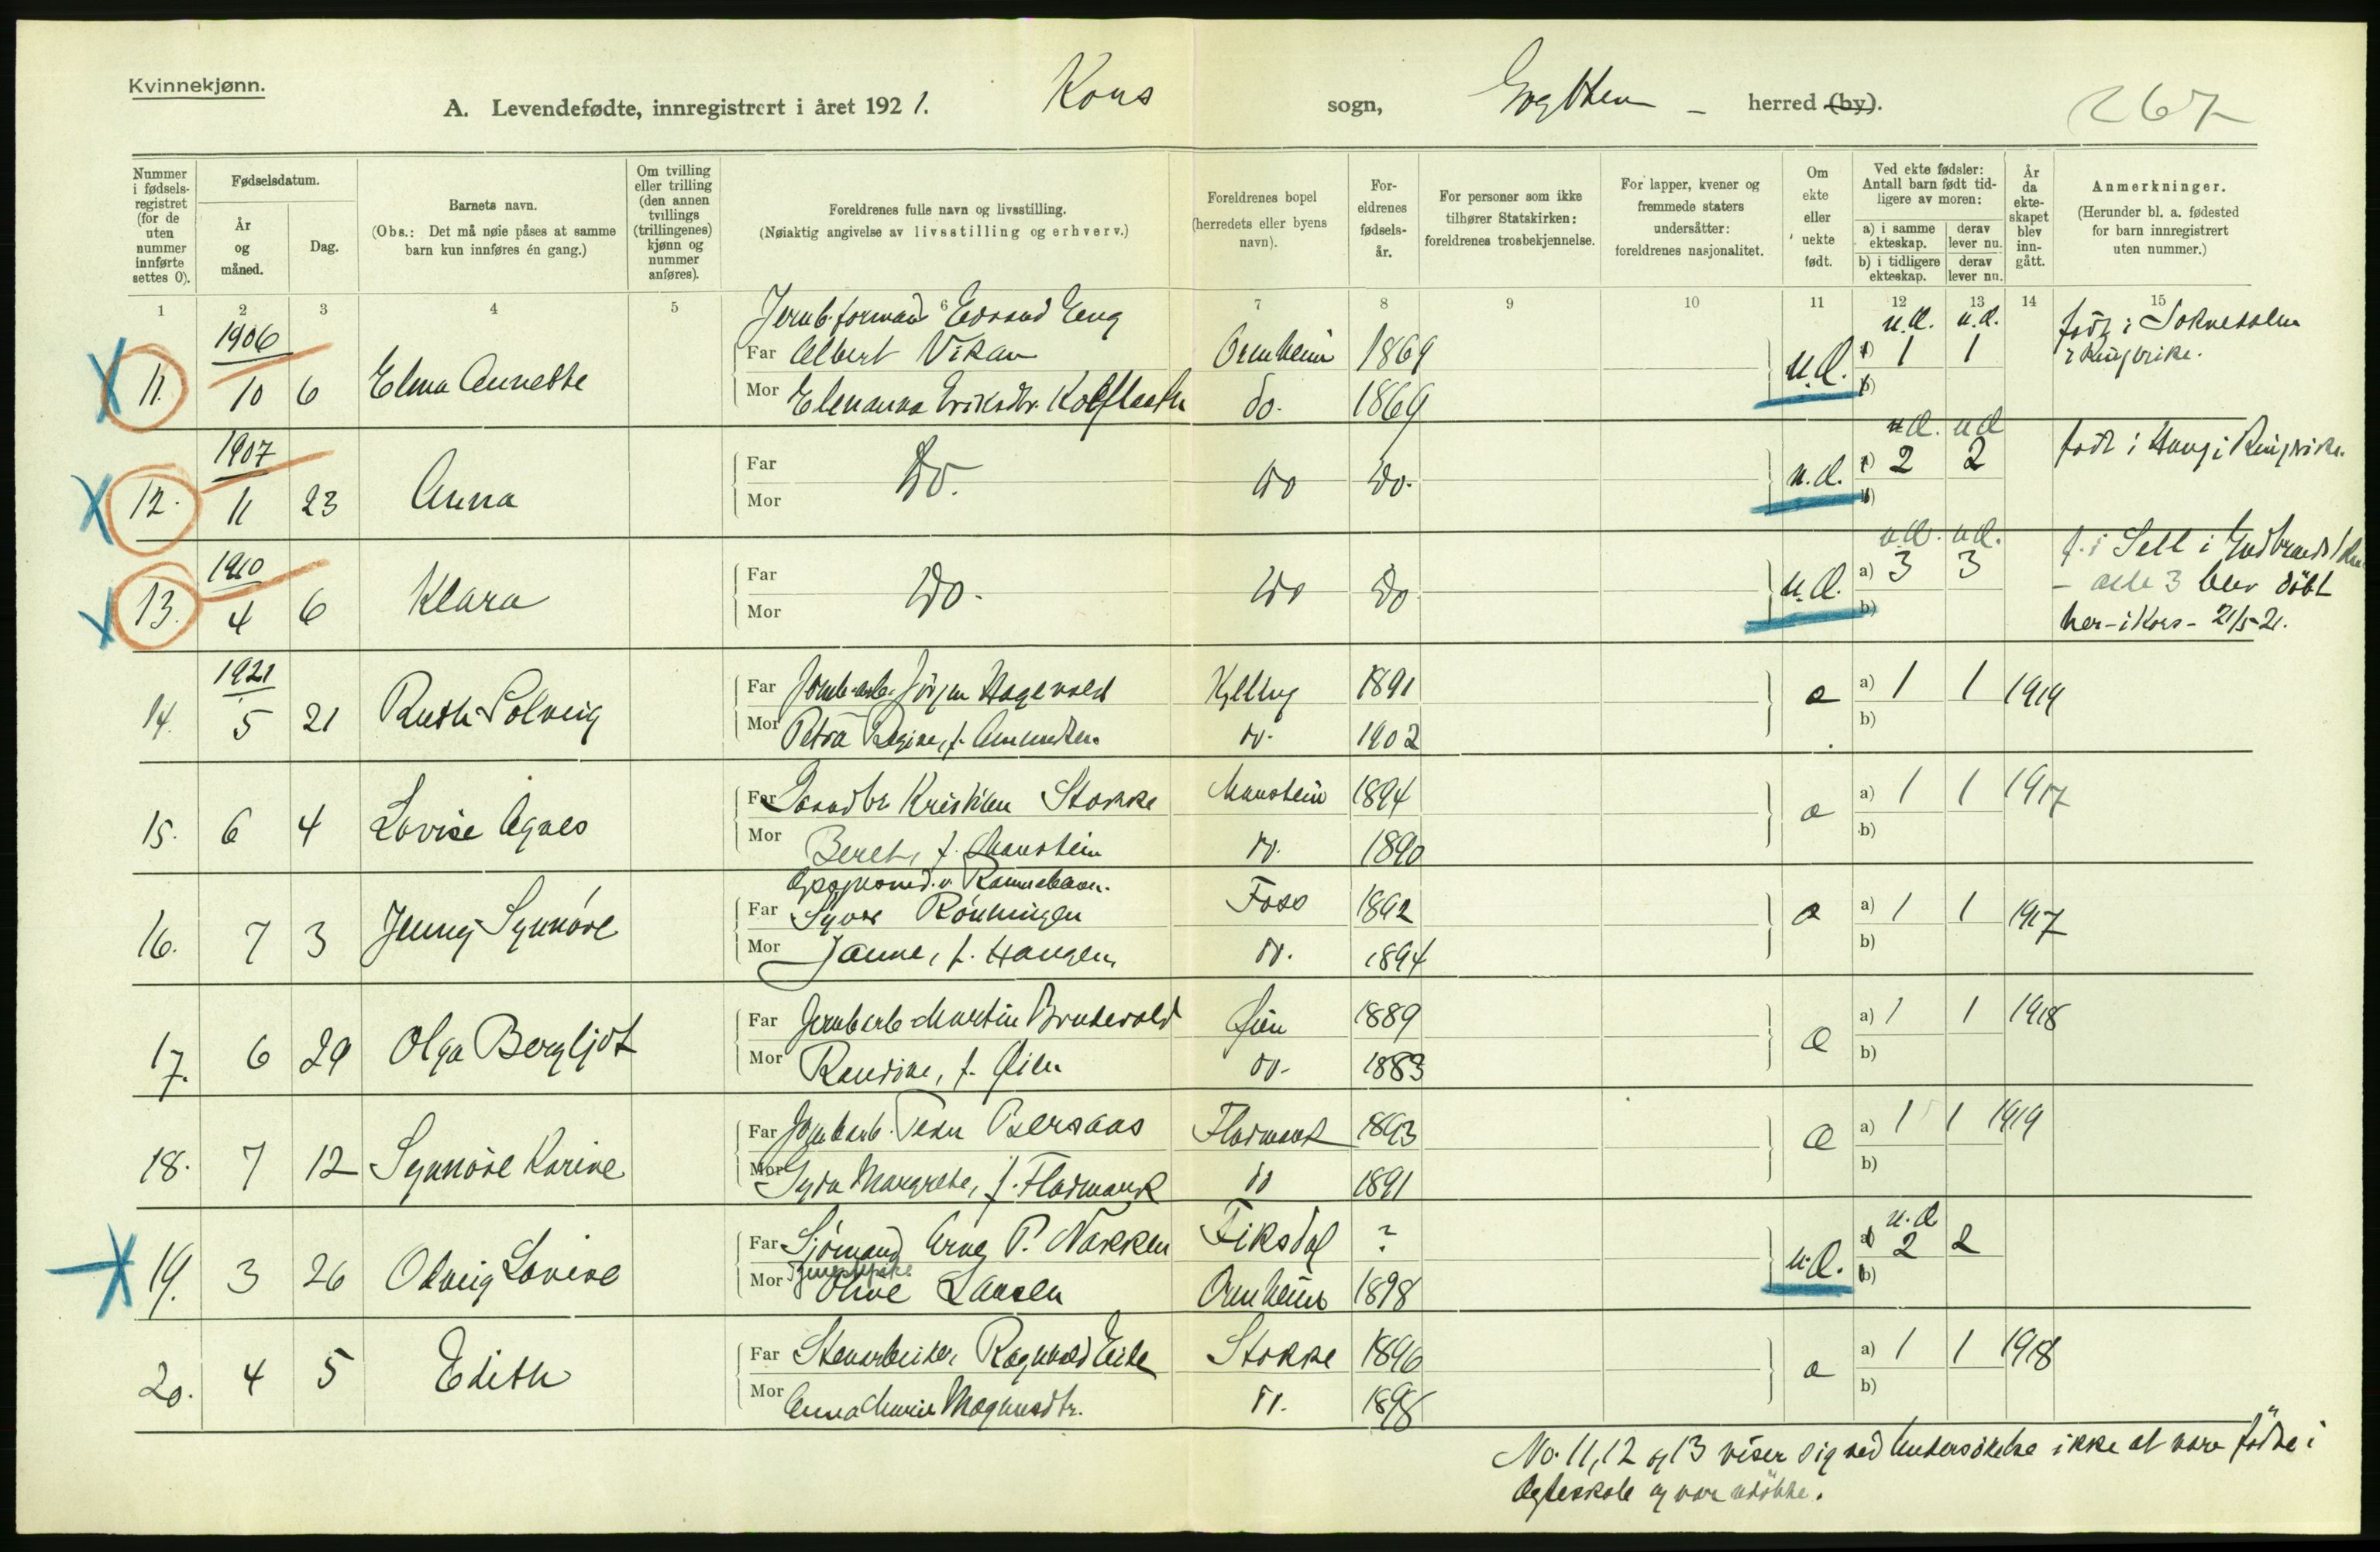 Kvinnekjønn.
A. Levendefødte, innregistrert i året 1921. Kors sogn, Grytten - herred (by).
267
Nummer i fødselsregistret (for de uten nummer innførte settes 0).
Fødselsdatum.
År og måned.
Dag.
Barnets navn.
(Obs.: Det må nøie påses at samme barn kun innføres én gang.)
Om tvilling eller trilling (den annen tvillings (trillingenes) kjønn og nummer anføres).
Foreldrenes fulle navn og livsstilling.
(Nøiaktig angivelse av livsstilling og erhverv.)
Foreldrenes bopel (herredets eller byens navn).
Foreldrenes fødselsår.
For personer som ikke tilhører Statskirken: foreldrenes trosbekjennelse.
For lapper, kvener og fremmede staters undersåtter: foreldrenes nasjonalitet.
Om ekte eller uekte født.
Ved ekte fødsler: Antall barn født tidligere av moren:
a) i samme ekteskap.
derav lever nu.
b) i tidligere ekteskap.
derav lever nu.
År da ekteskapet blev inngått.
Anmerkninger.
(Herunder bl. a. fødested for barn innregistrert uten nummer.)
1 2 3 4 5 6 7 8 9 10 11 12 13 14 15
1906
Jernb.formand Edvard Eeng
11. 10 6 Elma Annette Far Albert Vikan Ormheim 1869 u.æ. a) 1 1 u.æ. u.æ. født i Soknedalen
Mor Elenanna Eriksdtr. do. 1869 b) Ringerike.
1907
12. 11 23 Anna Far Mor Do. Do Do. u.æ. a) 2 2 b) u.æ. u.æ. født i Haug i Ringerike.
1910
13. 4 6 Klara Far Mor Do. Do Do u.æ. a) 3 3 b) u.æ. u.æ. f. i Sell i Gudbrandsdalen
- alle 3 blev döbt
her - i Kors - 21/5-21.
1921
14. 5 21 Ruth Solveig Far Jernb.arb. Jörgen Hagevold Kylling 1891 æ a) 1 1 1919
Mor Petra Regine, f. Amundsen do. 1902 b)
15. 6 4 Lovise Agnes Far Gaardbr. Kristian Stokke Monstein 1894 æ a) 1 1 1917
Mor Beret, f. Monstein do. 1890 b)
16. 7 3 Jenny Synnöve Far Syver Rönningen Foss 1892 æ a) 1 1 1917
Mor Janne, f. Haugen do. 1894 b)
17. 6 29 Olga Bergljot Far Jernb.arb. Martin Brudevold Øien 1889 æ a) 1 1 1918
Mor Randine, f. Øien do. 1883 b)
18. 7 12 Synnöve Karine Far Jernb.arb. Peder Fladmark 1893 æ a) 1 1 1919
Mor Gyda Margrethe, f. Fladmark do 1891 b)
19. 3 26 Olveig Lovise Far Sjömand Arne P. Nakken Fiksdal ? u.æ. u.æ a) 2 2
Mor Tjenestepike Oline Larsen Ormheim 1898 b)
20. 4 5 Edith Far Stenarbeider Ragnvald Eide Stokke 1896 æ a) 1 1 1918
Mor Anna Marie Magnusdtr. do. 1898 b)
No. 11, 12 og 13 viser sig ved Undersökelse ikke at være födte i
Ægteskab og var udöbte.